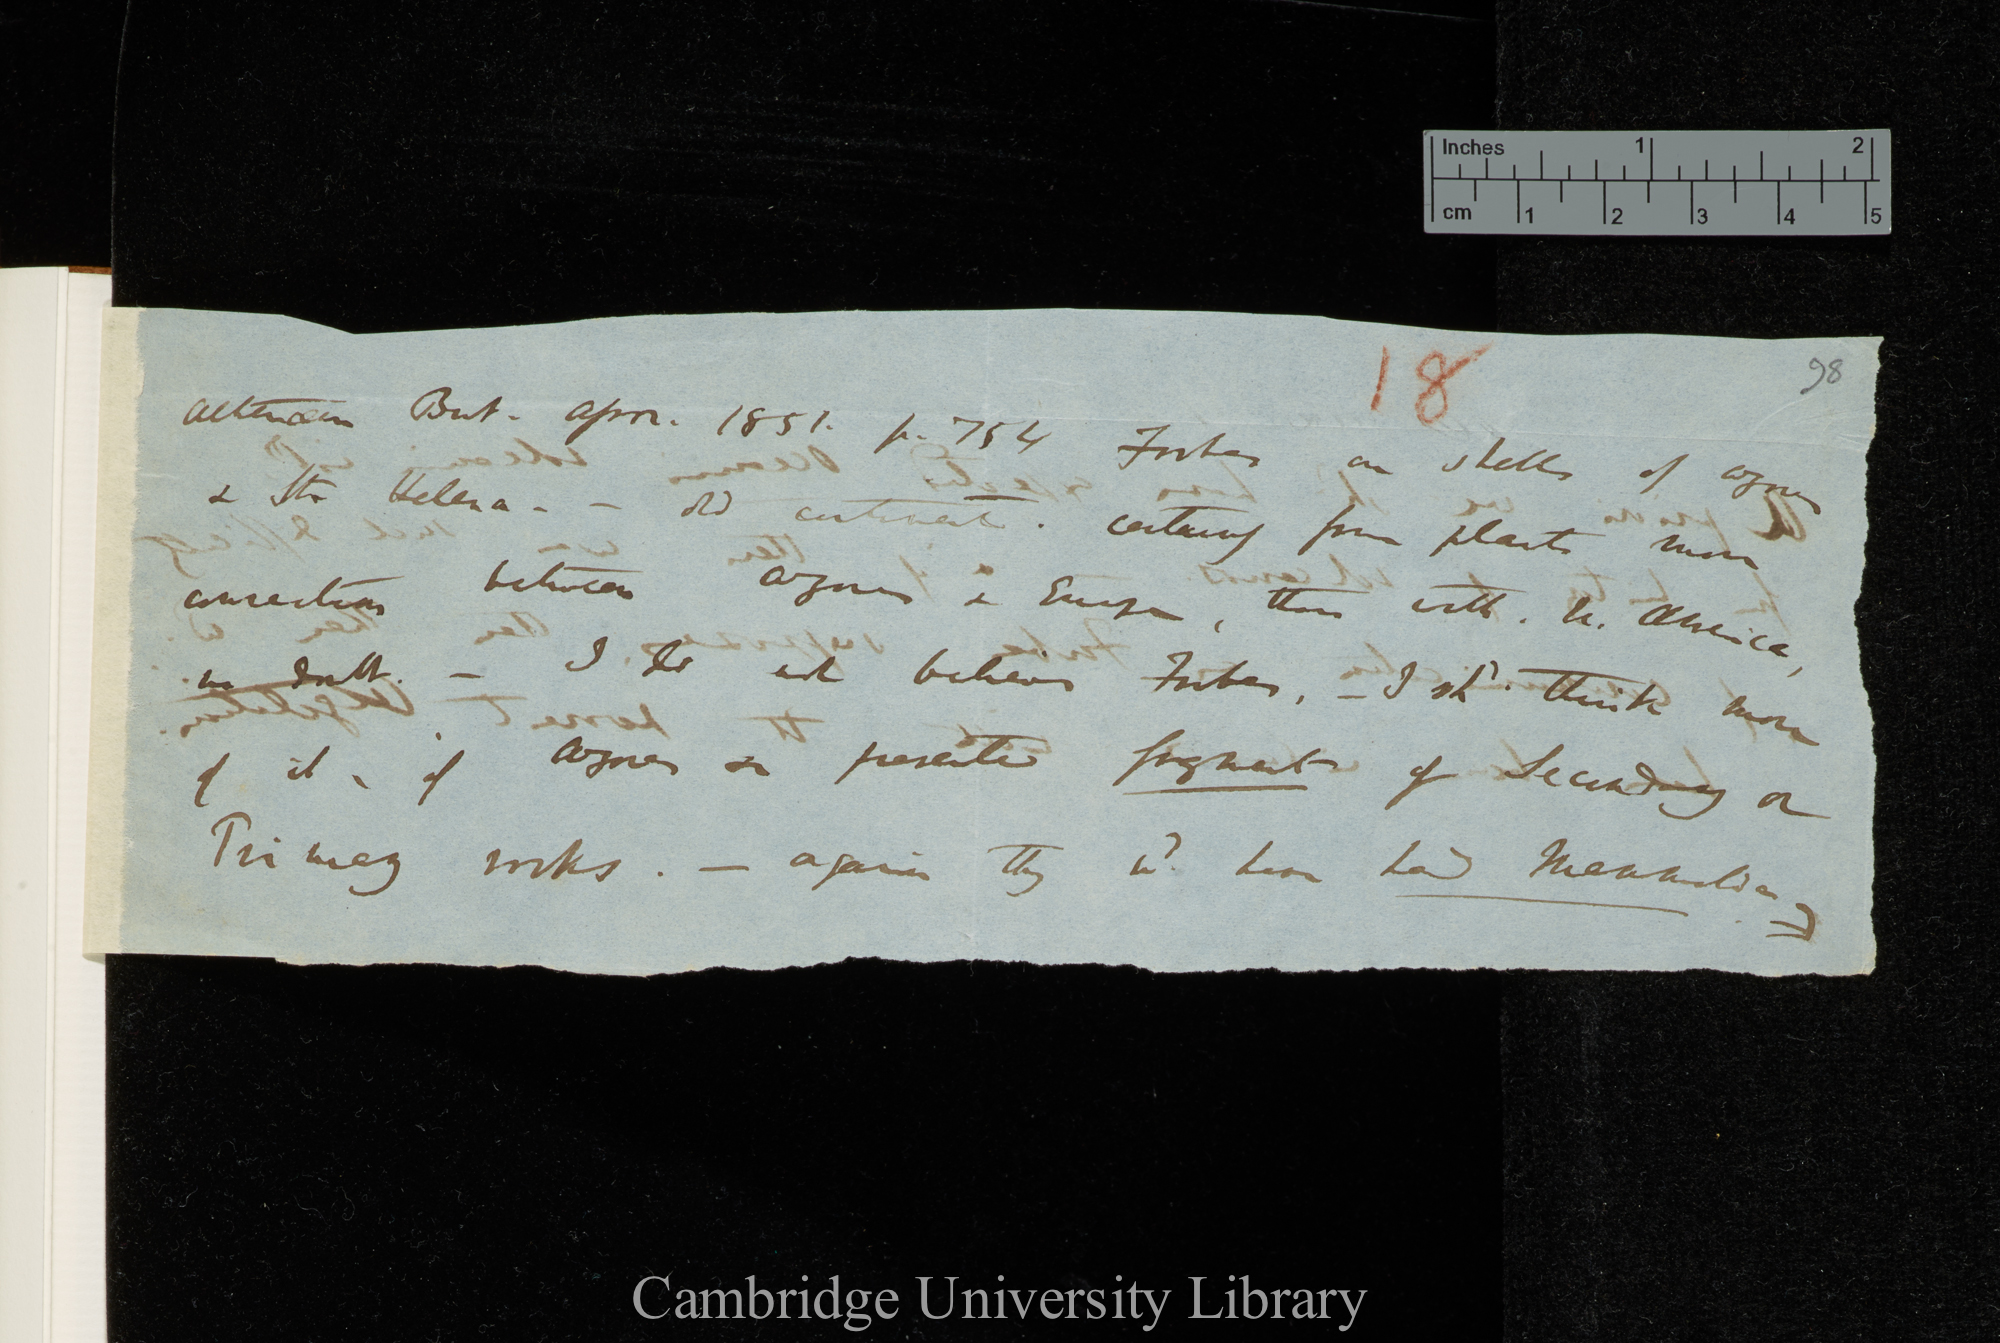 18
98
Athenæum Brit. Assoc. 1851. p. 754 Forbes on shells of Azores
& St. Helena. — old continent. certainly from plants more
connection between Azores & Europe, than with. N. America,
no doubt. — I do not believe Forbes, — I shd. think more
of it, if Azores &c presented fragments of Secondary or
Primary rocks. — again they wd. have had Mammalia
Inches 1 2
cm 1 2 3 4 5
Cambridge University Library